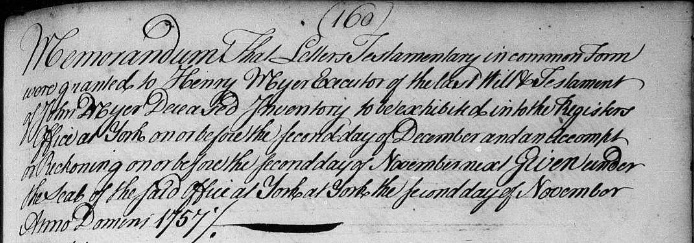 (160)
Memorandum That Letters Testamentary in common form
were granted to Henry Myer Executor of the last Will & Testament
of John Myer Deceased Inventory to be exhibited into the Registers
Office at York on or before the second day of December and an accompt
or Reckoning on or before the second day of November next Given under
the Seal of the said office at York at York the second day of November
Anno Domini 1757